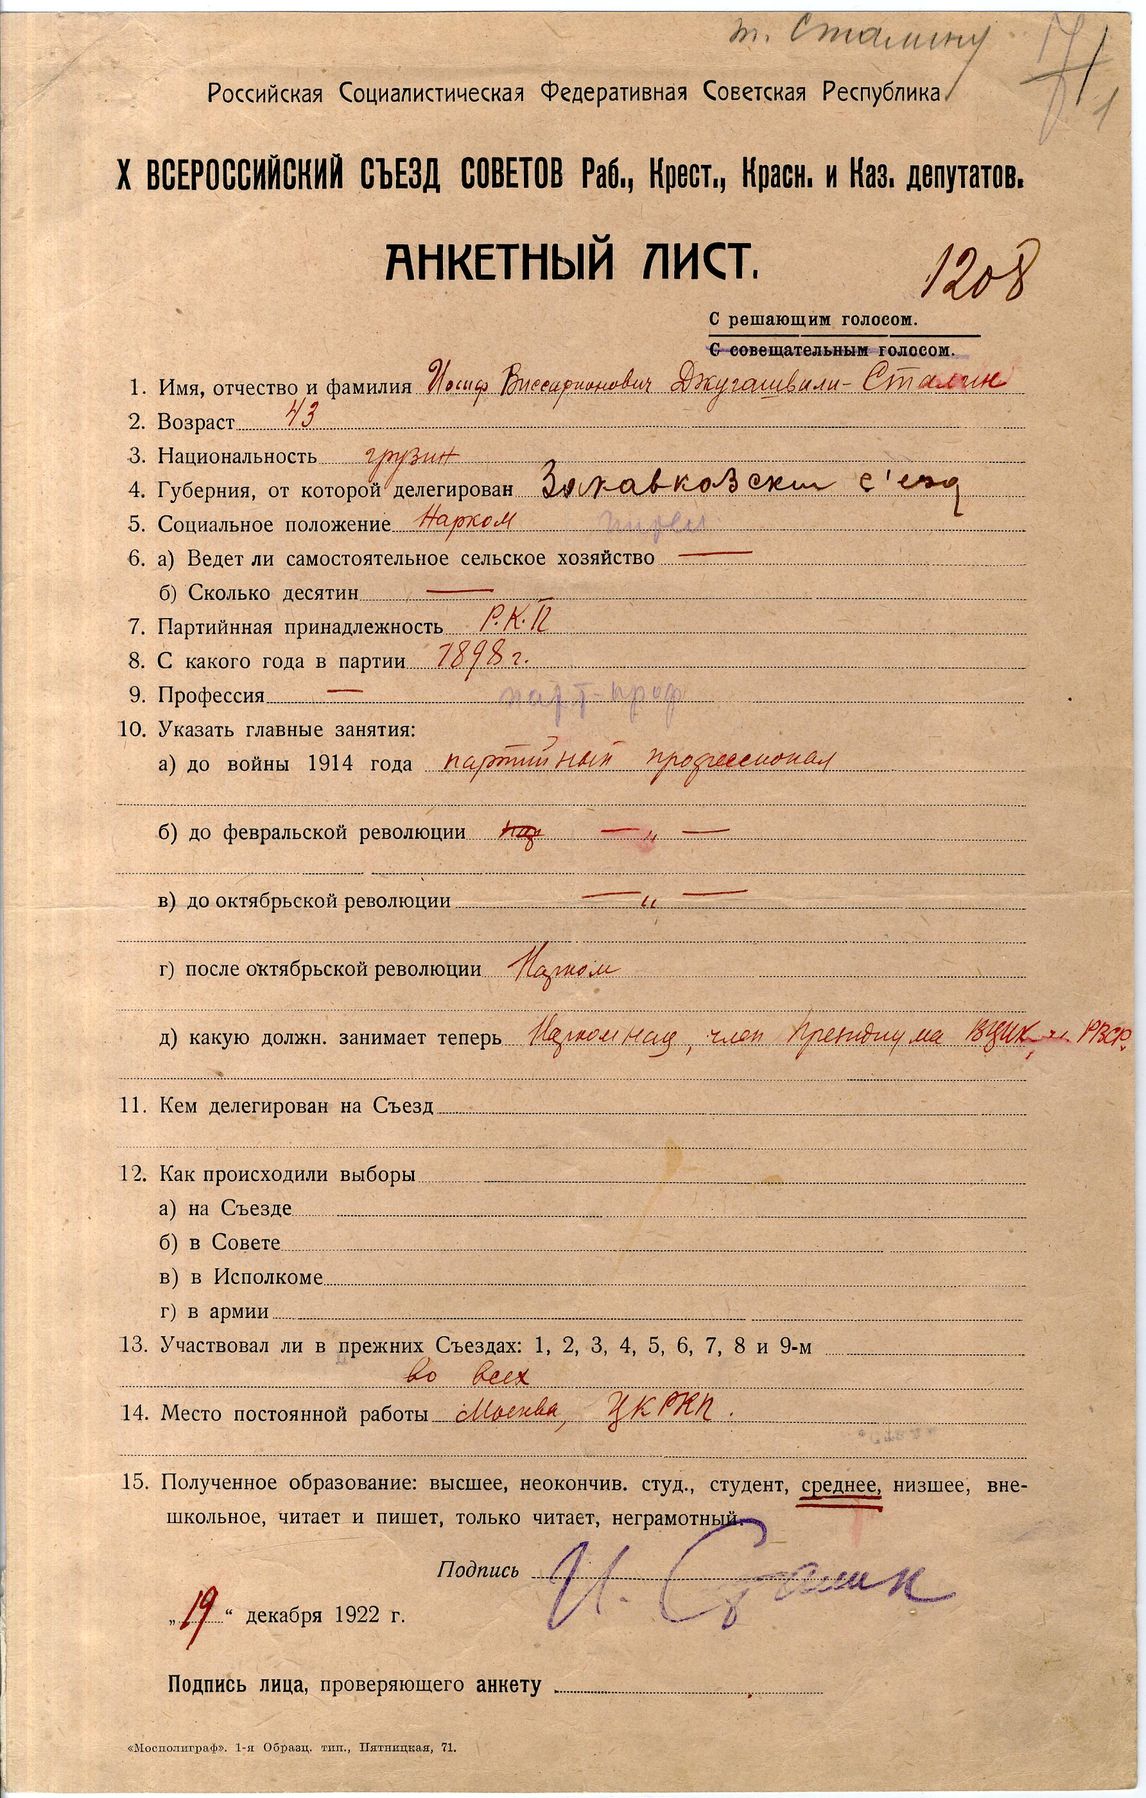 т. Сталину
1
Российская Социалистическая Федеративная Советская Республика
X ВСЕРОССИЙСКИЙ СЪЕЗД СОВЕТОВ Раб., Крест., Красн. и Каз. депутатов.
АНКЕТНЫЙ ЛИСТ.
1208
С решающим голосом.
С совещательным голосом.
1. Имя, отчество и фамилия Иосиф Виссарионович Джугашвили-Сталин
2. Возраст 43
3. Национальность грузин
4. Губерния, от которой делегирован Закавковский с'езд
5. Социальное положение Нарком
6. а) Ведет ли самостоятельное сельское хозяйство —
б) Сколько десятин —
7. Партийнная принадлежность Р.К.П
8. С какого года в партии 1898 г.
9. Профессия — парт-проф
10. Указать главные занятия:
а) до войны 1914 года партийный профессионал
б) до февральской революции — „ —
в) до октябрьской революции — „ —
г) после октябрьской революции Нарком
д) какую должн. занимает теперь Наркомнац, член Президиума ВЦИК, и РВСР.
11. Кем делегирован на Съезд
12. Как происходили выборы
а) на Съезде
б) в Совете
в) в Исполкоме
г) в армии
13. Участвовал ли в прежних Съездах: 1, 2, 3, 4, 5, 6, 7, 8 и 9-м
во всех
14. Место постоянной работы Москва, ЦКРКП.
15. Полученное образование: высшее, неокончив. студ., студент, среднее, низшее, вне-
школьное, читает и пишет, только читает, неграмотный.
Подпись И. Сталин
„19“ декабря 1922 г.
Подпись лица, проверяющего анкету
«Мосполиграф». 1-я Образц. тип., Пятницкая, 71.